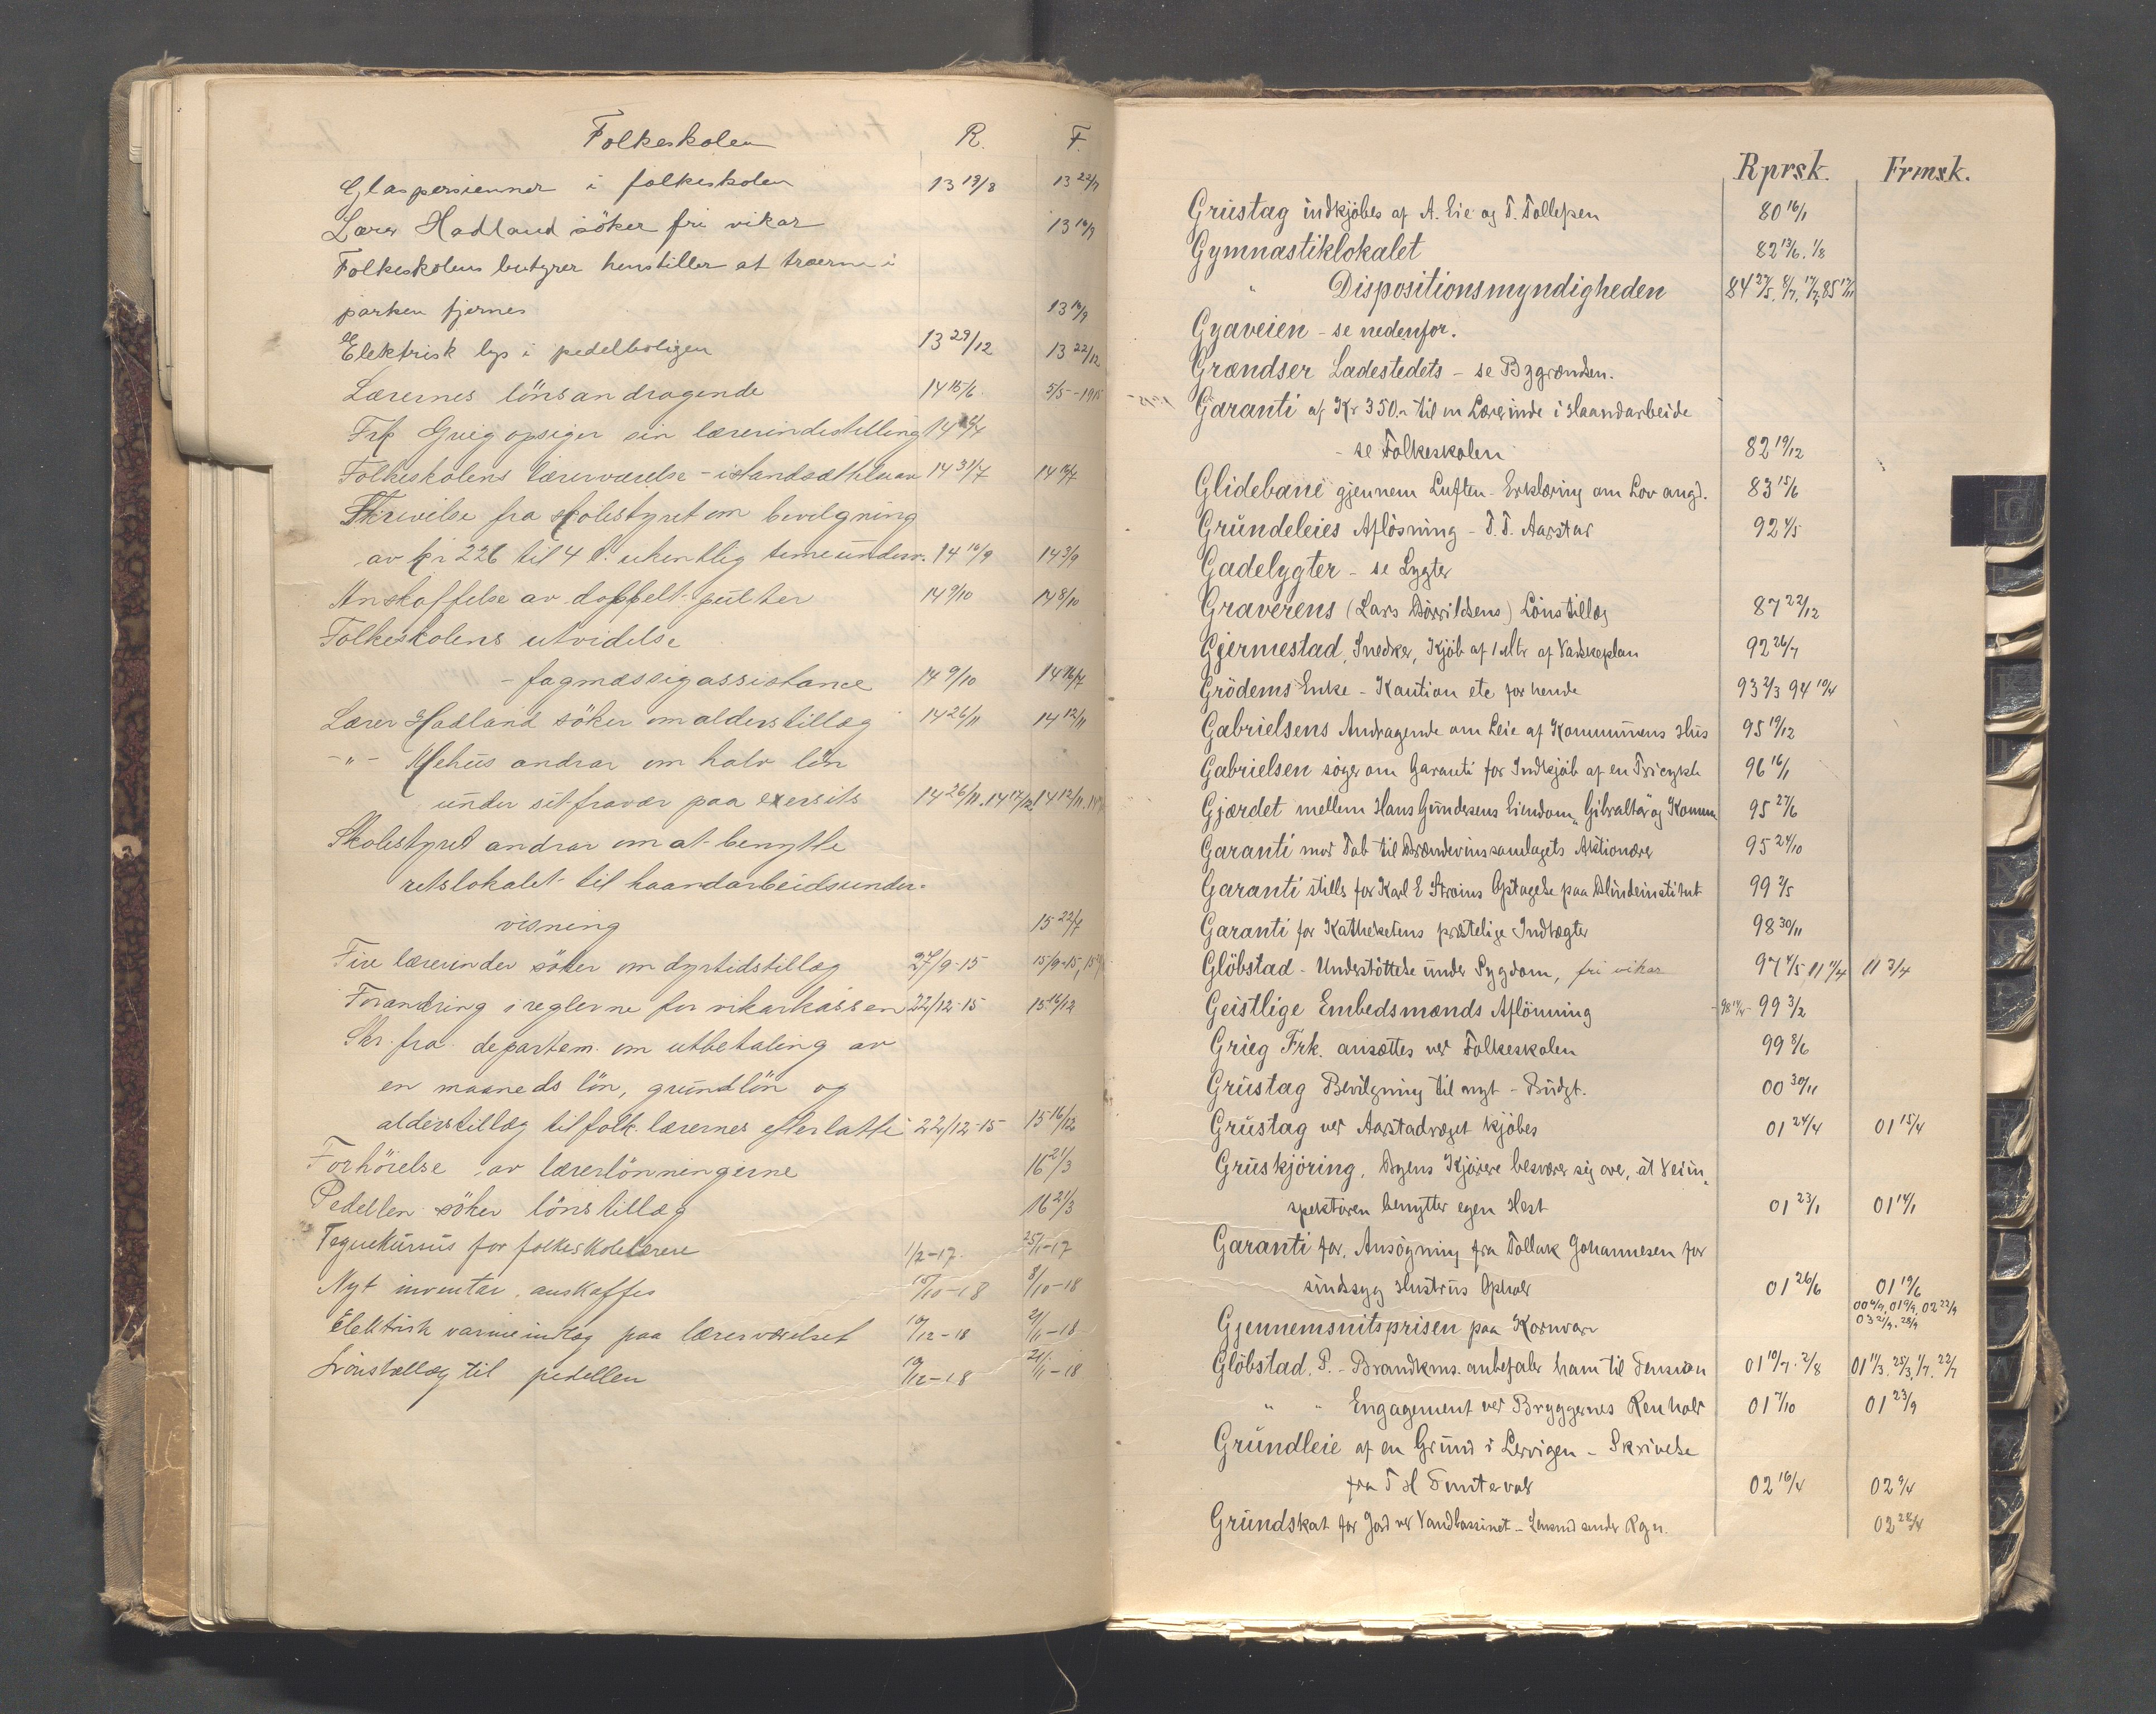 Folkeskolen R. F.
Glaspersienner i folkeskolen 13 19/8 13 22/7
Lærer Hadland söker fri vikar 13 10/9
Folkeskolens bestyrer henstiller at træerne i
parken fjernes 13 10/9
Elektrisk lys i pedelboligen 13 29/12 13 22/12
Lærernes lönsandragende 14 15/6 5/5-1915
Frk Grieg opsiger sin lærerindestilling 14
Folkeskolens lærerværelse - istandsættelse av 14 31/7 14
Skrivelse fra skolestyret om bevilgning
av kr 226 til 4 t. ukentlig timeunderv. 14 10/9 14 3/9
Anskaffelse av doppelt-pulter 14 9/10 14 8/10
Folkeskolens utvidelse
- fagmæssig assistance 14 9/10 14 16/7
Lærer Hadland söker om alderstillæg 14 26/11 14 12/11
-"- Mehus andrar om halv lön
under sit fravær paa exersits 14 26/11. 14 17/12 14 12/11.
Skolestyret andrar om at benytte
retslokalet til haandarbeidsunder-
visning 15 22/7
Fire lærerinder söker om dyrtidstillæg 27/9-15 15/9-15,
Forandring i reglerne for vikarkassen 22/12-15 15 16/12
Skr. fra departem. om utbetaling av
en maaneds lön, grundlön og
alderstillæg til folk. lærernes efterlatte 22/12-15 15 16/12
Forhöielse av lærerlönningerne 16 21/3
Pedellen söker lönstillæg 16 21/3
Tegnekursus for folkeskolelærere 1/2-17 25/1-17
Nyt inventar anskaffes 10/10-18 8/10-18
Elektrisk varmeindlæg paa lærerværelset 10/12-18 21/11-18
Lönstillæg til pedellen 10/12-18 21/11-18
Rprsk. Frmsk.
Grustag indkjöbes af A. Lie og T. Tollefsen 80 16/1
Gymnastiklokalet 82 13/6. 1/8
" Dispositionsmyndigheden 84 27/5, 8/7, 17/7, 85 17/11
Gyaveien - se nedenfor.
Grændser Ladestedets - se Bygrændsen.
Garanti af Kr 350.- til en Lærerinde i Haandarbeide
- se Folkeskolen 82 19/12
Glidebane gjennem Luften - Erklæring om Lov angd. 83 15/6
Grundeleies Aflösning - T. T. Aarstad 92 4/5
Gadelygter - se Lygter
Graverens (Lars Börrildsens) Lönstillæg 87 22/12
Gjermestad, Snedker, Kjöb af 1 Mtr af Vaskeplan 92 26/7
Grödems Enke - Kaution etc for hende 93 2/3 94 19/4
Gabrielsens Andragende om Leie af Kommunens Hus 95 19/12
Gabrielsen söger om Garanti for Indkjöb af en Tricykle 96 16/1
Gjærdet mellem Hans Gundersens Eiendom "Gibraltar" og Komm 95 27/6
Garanti mod Tab til Brændevinssamlagets Aktionærer 95 24/10
Garanti stilles for Karl E Ströms Optagelse paa Blindeinstitut 99 2/5
Garanti for Kathekетens præstelige Indtægter 98 30/11
Glöbstad - Understöttelse under Sygdom, fri vikar 97 4/5 11 11/4 11 3/4
Geistlige Embedsmænds Aflönning 98 14/4 - 99 3/2
Grieg Frk. ansættes ved Folkeskolen 99 8/6
Grustag Bevilgning til nyt - Budgt. 00 30/11
Grustag ved Aarstadvæget kjöbes 01 24/4 01 15/4
Gruskjöring, Byens Kjörere besværer sig over, at Veiin„
spektören benytter egen Hest 01 23/1 01 14/1
Garanti for, Ansögning fra Tollak Johannesen for
sindssyg Hustrus Ophold 01 26/6 01 19/6
Gjennemsnitsprisen paa Kornvare 00 6/9, 01 9/9, 02 22/9 03 21/9. 28/9
Glöbstad, P. - Brandkms. anbefaler ham til Pension 01 10/7. 2/8 01 11/3. 25/3, 1/7. 22/7
" " Engagement ved Bryggernes Renhold 01 7/10 01 23/9
Grundleie af en Grund i Lervigen - Skrivelse
fra T H 02 16/4 02 9/4
Grundskat for Jord ved Vandbassinet - Lensmd sender Regn. 02 28/4
G